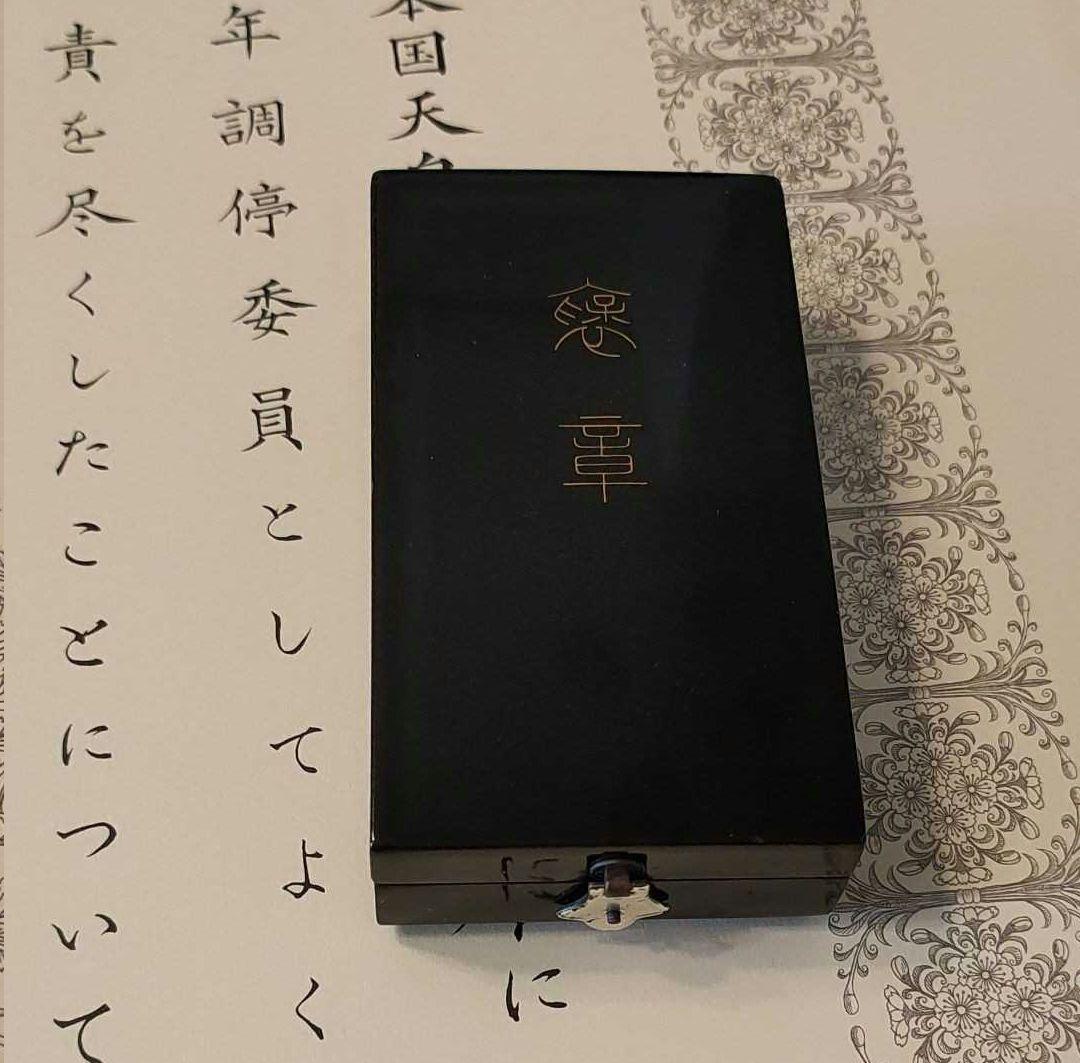 褒章
本国天
に
年調停委員としてよく
責を尽くしたことについて